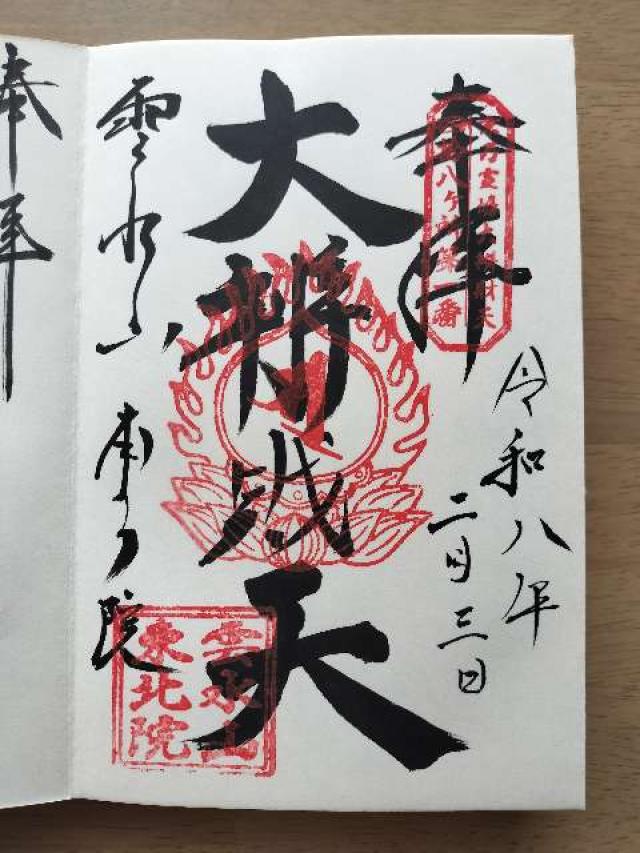 奉拝
八ヶ所第一番
令和八年
二月三日
大辨財天
雲水山 東北院
雲水山
東北院
奉拝